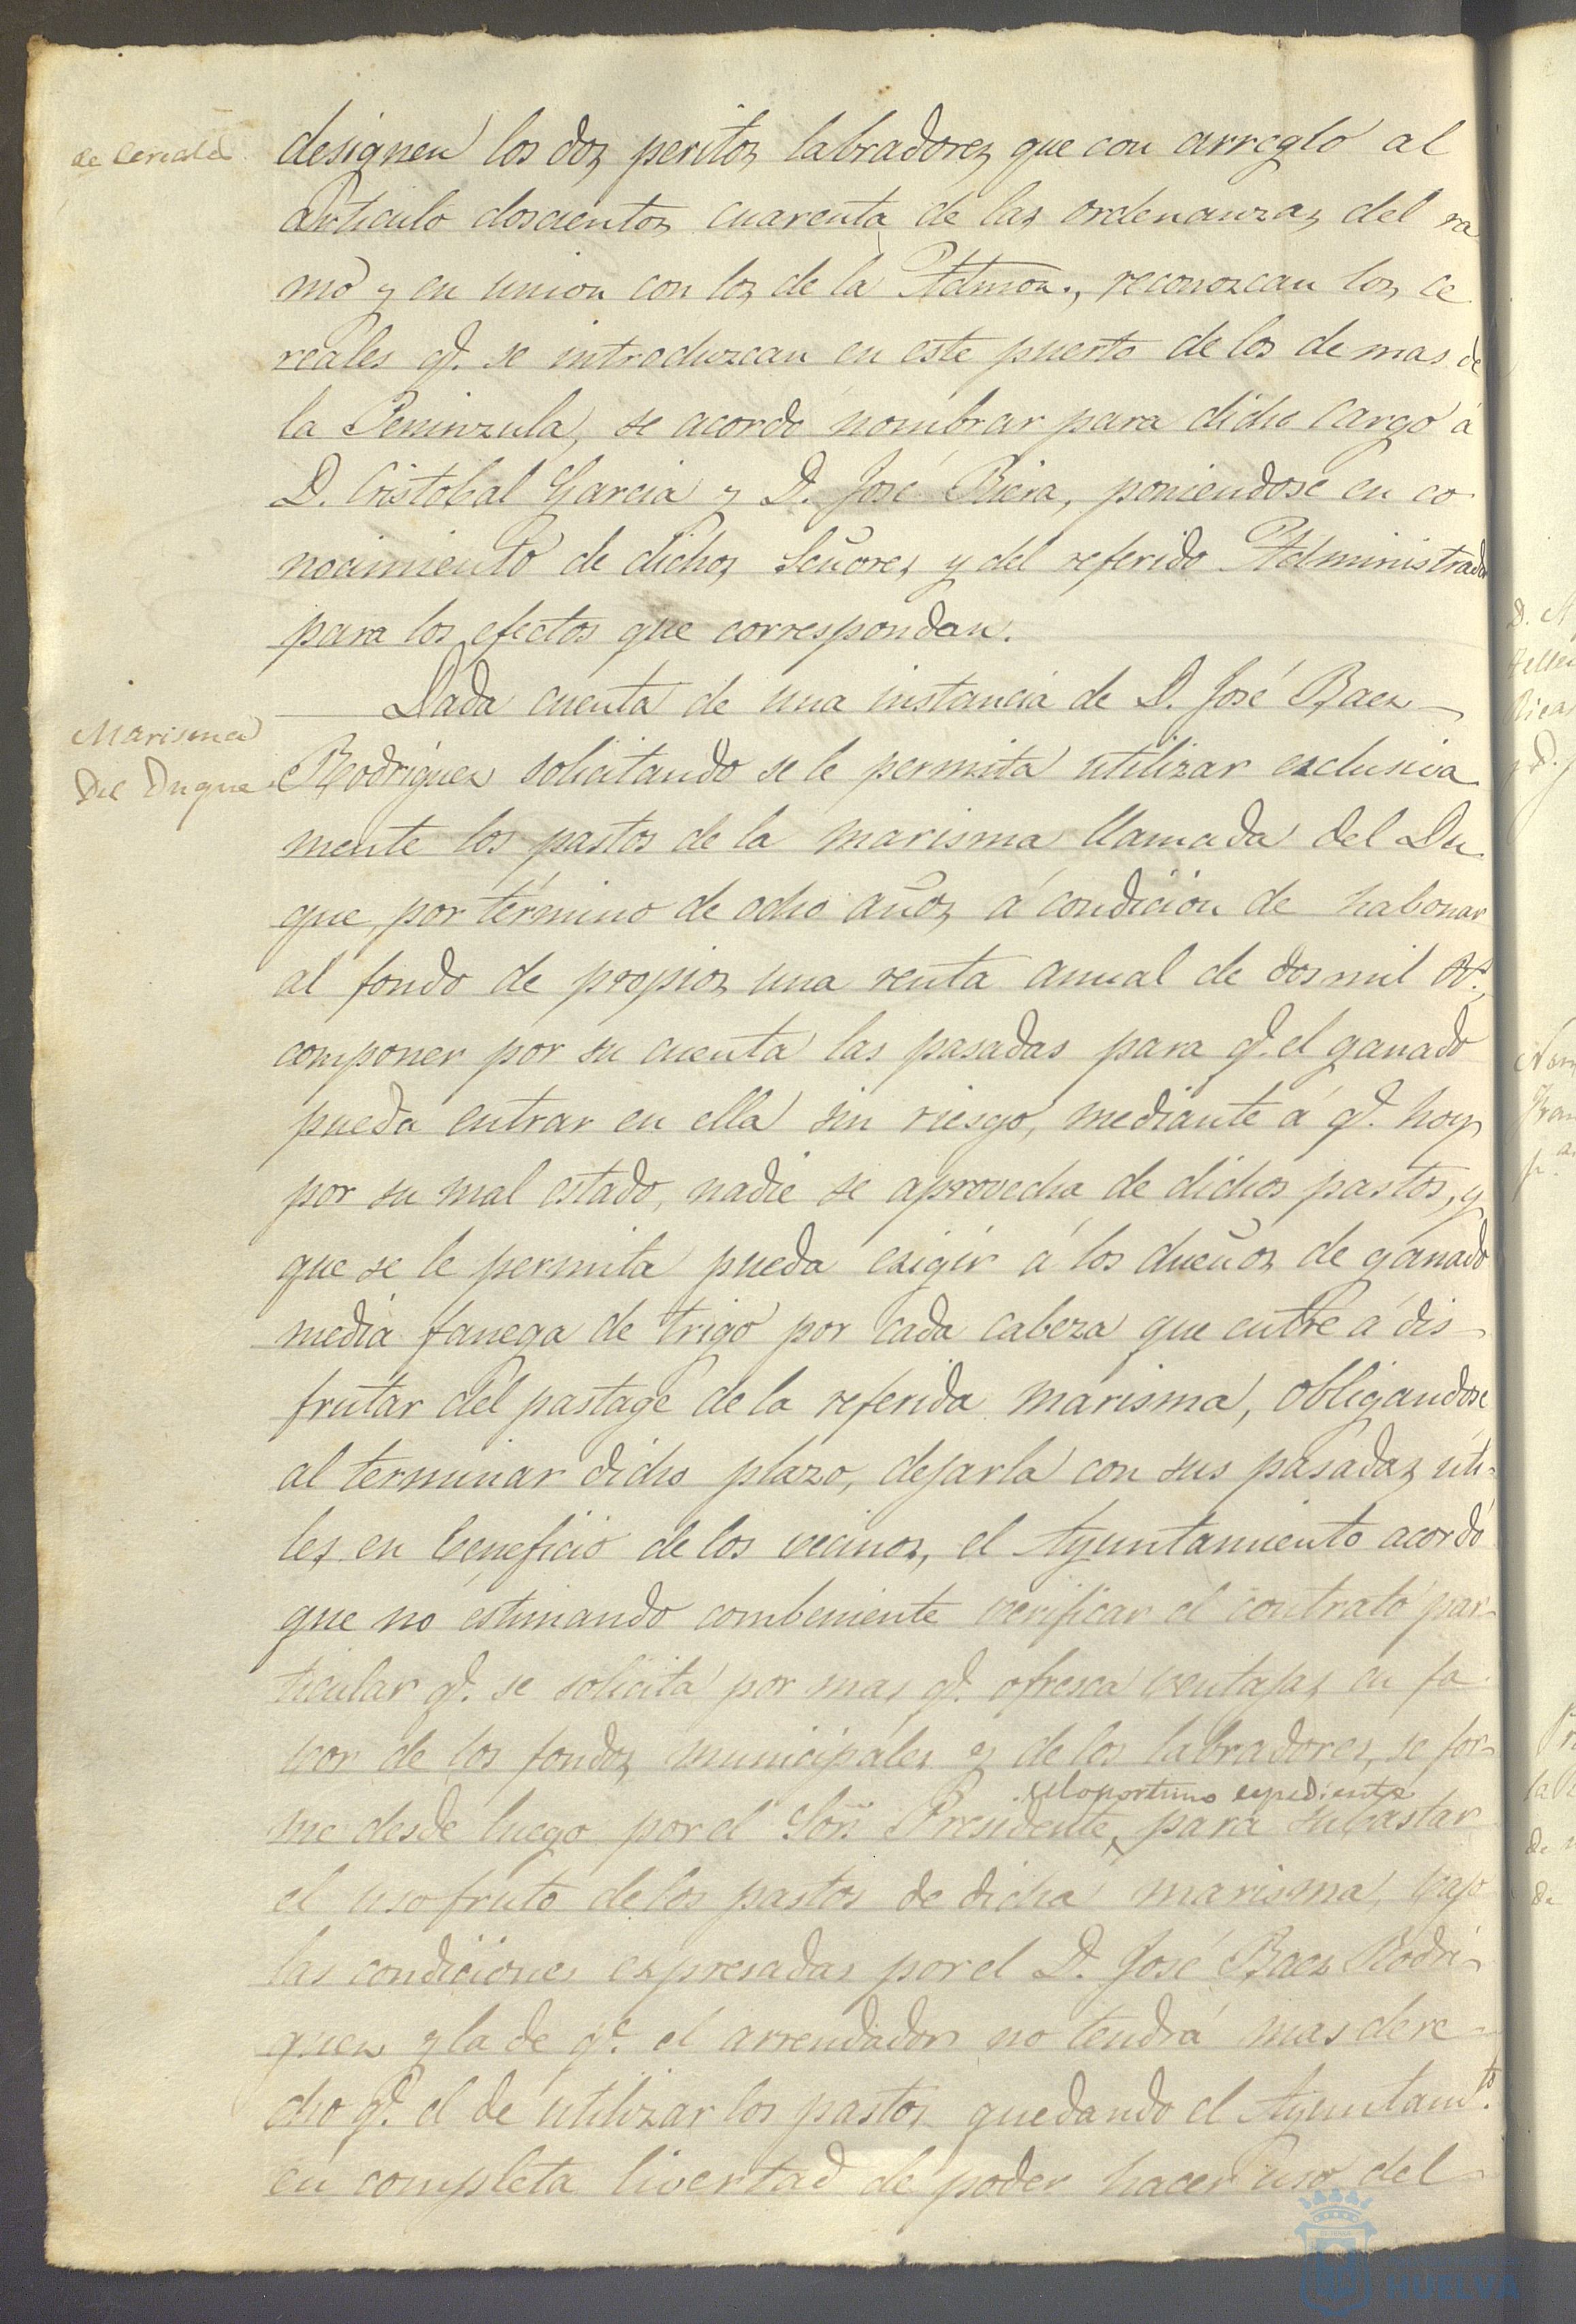 de cereales
designen los dos peritos labradores que con arreglo al
articulo doscientos cuarenta de las ordenanzas del ra
mo y en union con los de la Admon., reconozcan los ce
reales q.e se introduzcan en este puerto de los de mas de
la Peninzula, se acordó nombrar para dicho cargo á
D. Cristobal Garcia y D. José Riera, poniendose en co
nocimiento de dichos Señores y del referido Administrador
para los efectos que correspondan.
Marisma
del Duque
Dada cuenta de una instancia de D. José Baez
Rodriguez solicitando se le permita utilizar exclusiva
mente los pastos de la marisma llamada del Du
que, por término de ocho años á condicion de habonar
al fondo de propios una renta anual de dos mil r.s
componer por su cuenta las pasadas para q.e el ganado
pueda entrar en ella sin riesgo, mediante á q.e hoy
por su mal estado, nadie se aprovecha de dichos pastos, y
que se le permita pueda exigir á los dueños de ganado
media fanega de trigo por cada cabeza que entre á dis
frutar del pastage de la referida marisma, obligandose
al terminar dicho plazo, dejarla con sus pasadas úti-
les en beneficio de los vecinos, el Ayuntamiento acordó
que no estimando combeniente verificar el contrato par-
ticular q.e se solicita por mas q.e ofresca ventajas en fa
vor de los fondos municipales y de los labradores, se for-
el oportuno espediente
me desde luego por el Sõr Presidente, para subastar
el usofruto de los pastos de dicha marisma, vajo
las condiciones expresadas por el D. José Baez Rodri-
guez y la de q.e el arrendador no tendrá mas dere-
cho q.e el de utilizar los pastos quedando el Ayuntam.to
en completa livertad de poder hacer uso del
HUELVA